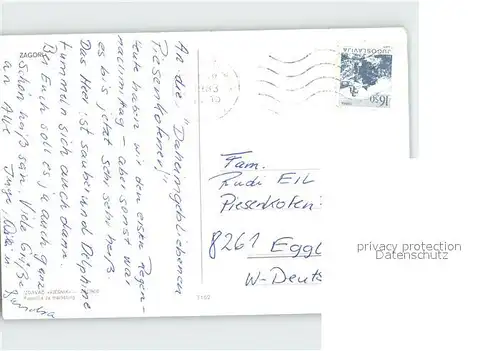 ZAGOR
An die "Daheimgebliebenen
Piesenkofener!"
Heute haben wir den ersten Regen-
nachmittag - aber sonst war
es bis jetzt sehr sehr heiß.
Das Meer ist sauber und Delphine
tummeln sich auch darin.
Bei Euch soll es ja auch ganz
schön heiß san. Viele Grüße
an Alle
Inge,
Sandra
JUGOSLAVIJA
16.50
Fam.
Rudi EIL
Piesenkofen
8261 Eggl
W-Deuts
privacy protection
Datenschutz